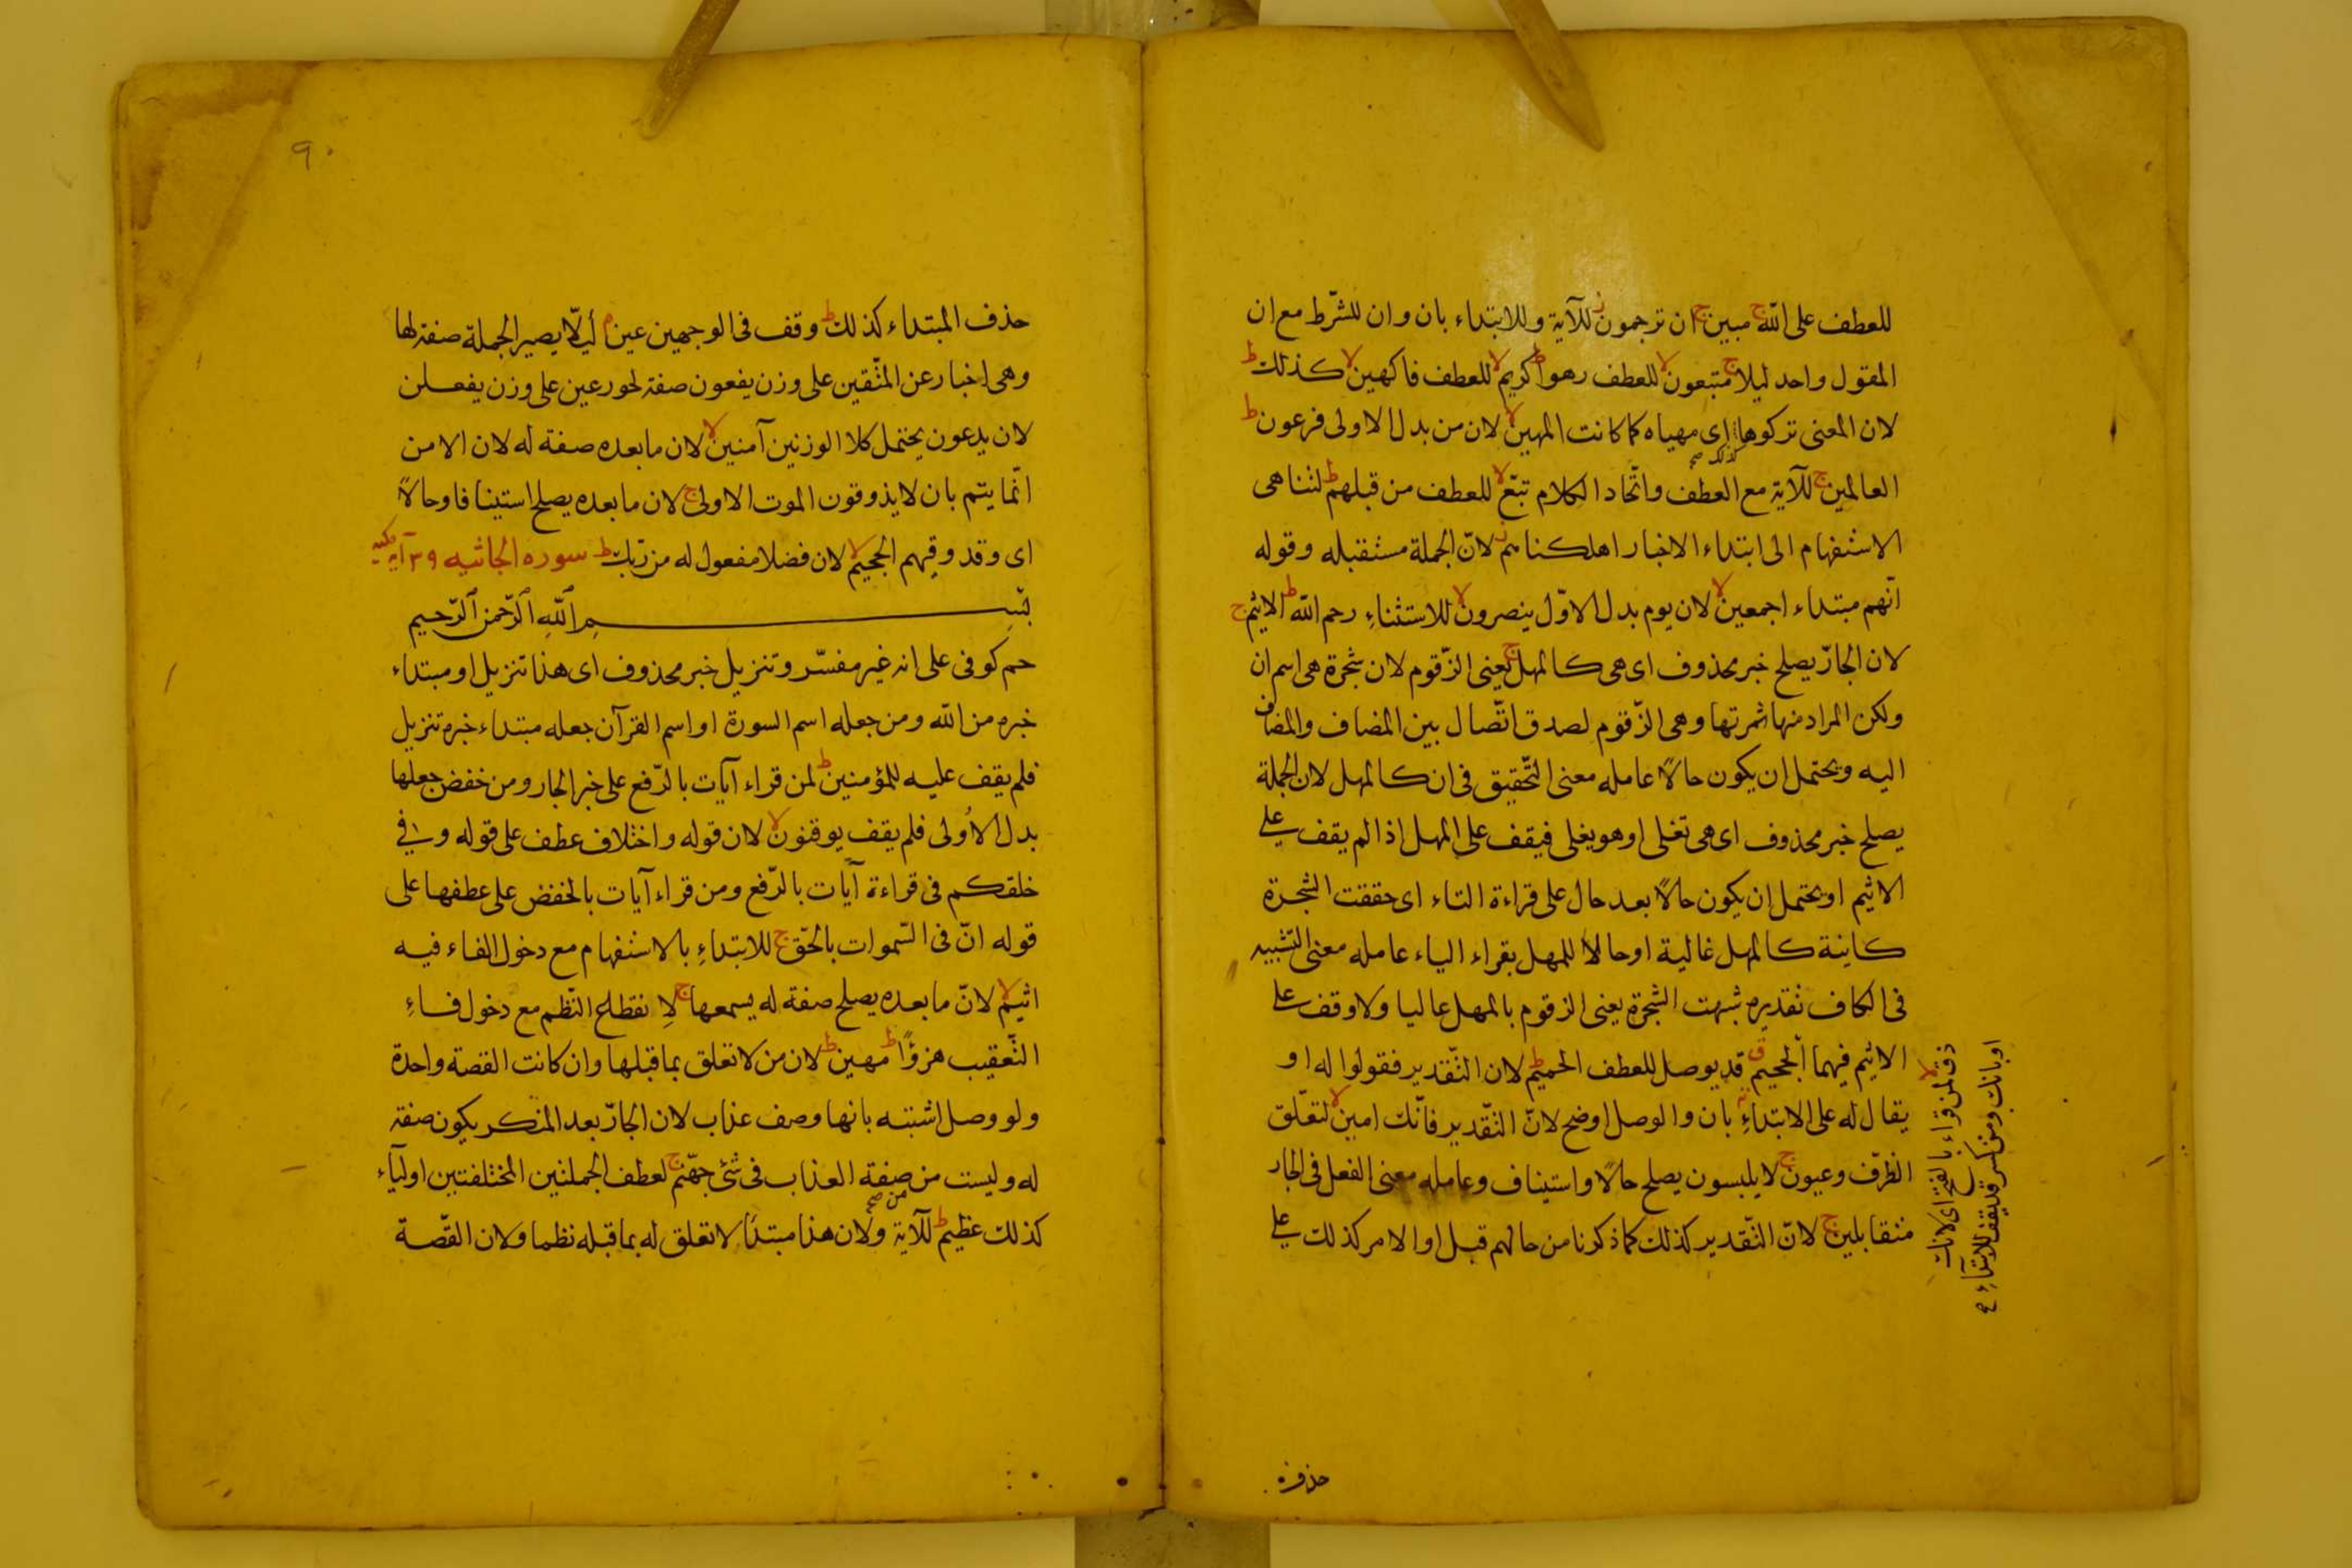 للعطف على اللّه ج مبين ج ان ترجمون ز للآية وللابتداء بان وان للشّرط مع ان
المقول واحد ليلا ج متبعون لا للعطف رهوا ط كريم لا للعطف فاكهين لا كذلك ط
لان المعنى تركوها اى مهياه كما كانت المهين لا لان من بدل الاولى فرعون ط
كذلك صح
العالمين ج للآية مع العطف واتّحاد الكلام تبّع لا للعطف من قبلهم ط لتناهى
الاستفهام الى ابتداء الاخبار اهلكناهم ز لانّ الجملة مستقبله وقوله
انّهم مبتداء اجمعين لا لان يوم بدل الاوّل ينصرون لا للاستثناءِ رحم اللّه ط الاثيم ج
لان الجارّ يصلح خبر محذوف اى هى كالمهل ج يعنى الزّقوم لان شجرة هى اسم ان
ولكن المراد منها ثمرتها وهى الزّقوم لصدق اتّصال بين المضاف والمضاف
اليه ويحتمل ان يكون حالاً عامله معنى التّحقيق فى ان كالمهل لان الجملة
يصلح خبر محذوف اى هى تغلى او هو يغلى فيقف على المهل اذا لم يقف على
الاثيم او يحتمل ان يكون حالاً بعد حال على قراءة التاء اى حققت الشجرة
كاينة كالمهل غالية او حالا للمهل بقراء الياء عامله معنى التّشبيه
فى الكاف تقديره شبهت الشجرة يعنى الزقوم بالمهل غاليا ولا وقف على
الاثيم فيهما الجحيم ق قد يوصل للعطف الحميم ط لان التّقدير فقولوا له او
يقال له على الابتداءِ بان والوصل اوضح لانّ التّقدير فانّك امين لا لتعلّق
الظرّف وعيون ج لا يلبسون يصلح حالاً واستيناف وعامله معنى الفعل فى الجار
متقابلين ج لانّ التّقدير كذلك كما ذكرنا من حالهم قبل او الامر كذلك على
ذق لا لمن قراء بالفتح اى لانك
او بانك ومن كسر قد يقف للابتداءِ صح
حذف
٩٠
حذف المبتداء كذلك ط وقف فى الوجهين عين م لئلّا يصير الجملة صفة لها
وهى اخبار عن المتّقين على وزن يفعون صفة لحور عين على وزن يفعلن
لان يدعون يحتمل كلا الوزنين آمنين لا لان ما بعده صفة له لان الامن
انّما يتم بان لا يذوقون الموت الاولى ج لان ما بعده يصلح استينافا وحالاً
اى وقد وقيهم الجحيم لا لان فضلا مفعول له من ربّك ط سوره الجاثيه ٣٩ آية مكيه
بسم اللّه الرّحمن الرّحيم
حم كوفى على انه غير مفسّر وتنزيل خبر محذوف اى هذا تنزيل او مبتداء
خبره من اللّه ومن جعله اسم السورة او اسم القرآن جعله مبتداء خبره تنزيل
فلم يقف عليه للمؤمنين ط لمن قراء آيات بالرّفع على خبر الجار ومن خفض جعلها
بدل الاُولى فلم يقف يوقنون لا لان قوله واختلاف عطف على قوله وفى
خلقكم فى قراءة آيات بالرّفع ومن قراء آيات بالخفض على عطفها على
قوله انّ فى السّموات بالحّق ج للابتداءِ بالاستفهام مع دخول الفاء فيه
اثيم لا لانّ ما بعده يصلح صفة له يسمعها ج لانقطاع النّظم مع دخول فاءِ
التّعقيب هزوًا ط مهين ط لان من لا تعلق بما قبلها وان كانت القصة واحدة
ولو وصل اشتبه بانها وصف عذاب لان الجارّ بعد المنكر يكون صفة
له وليست من صفة العذاب فى شئ جهّنم ج لعطف الجملتين المختلفتين اوليآء
من صح
كذلك عظيم ط للآية ولان هذا مبتدَا لا تعلق له بما قبله نظما ولان القّصة